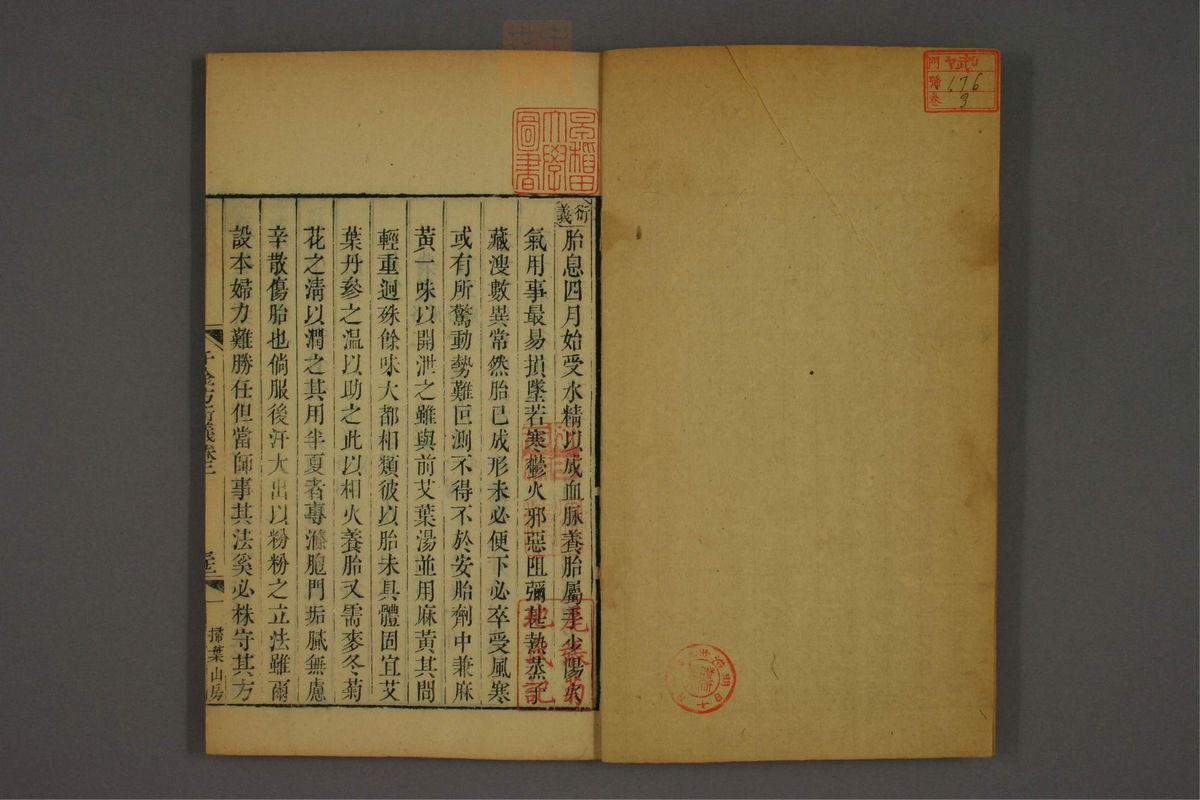 衍義
胎息四月始受水精以成血脉養胎屬手少陽火
氣用事最易損墜若寒鬱火邪惡阻彌甚熱蒸手
藏溲數異常然胎已成形未必便下必卒受風寒
或有所驚動勢難叵測不得不於安胎劑中兼麻
黃一味以開泄之雖與前艾葉湯並用麻黃其間
輕重迥殊餘味大都相類彼以胎未具體固宜艾
葉丹參之温以助之此以相火養胎又需麥冬菊
花之清以潤之其用半夏者專滌胞門垢膩無慮
辛散傷胎也倘服後汗大出以粉粉之立法雖爾
設本婦力難勝任但當師事其法奚必株守其方
千金方衍義卷三
掃葉山房
早稻田大學圖書
門號卷
176
3